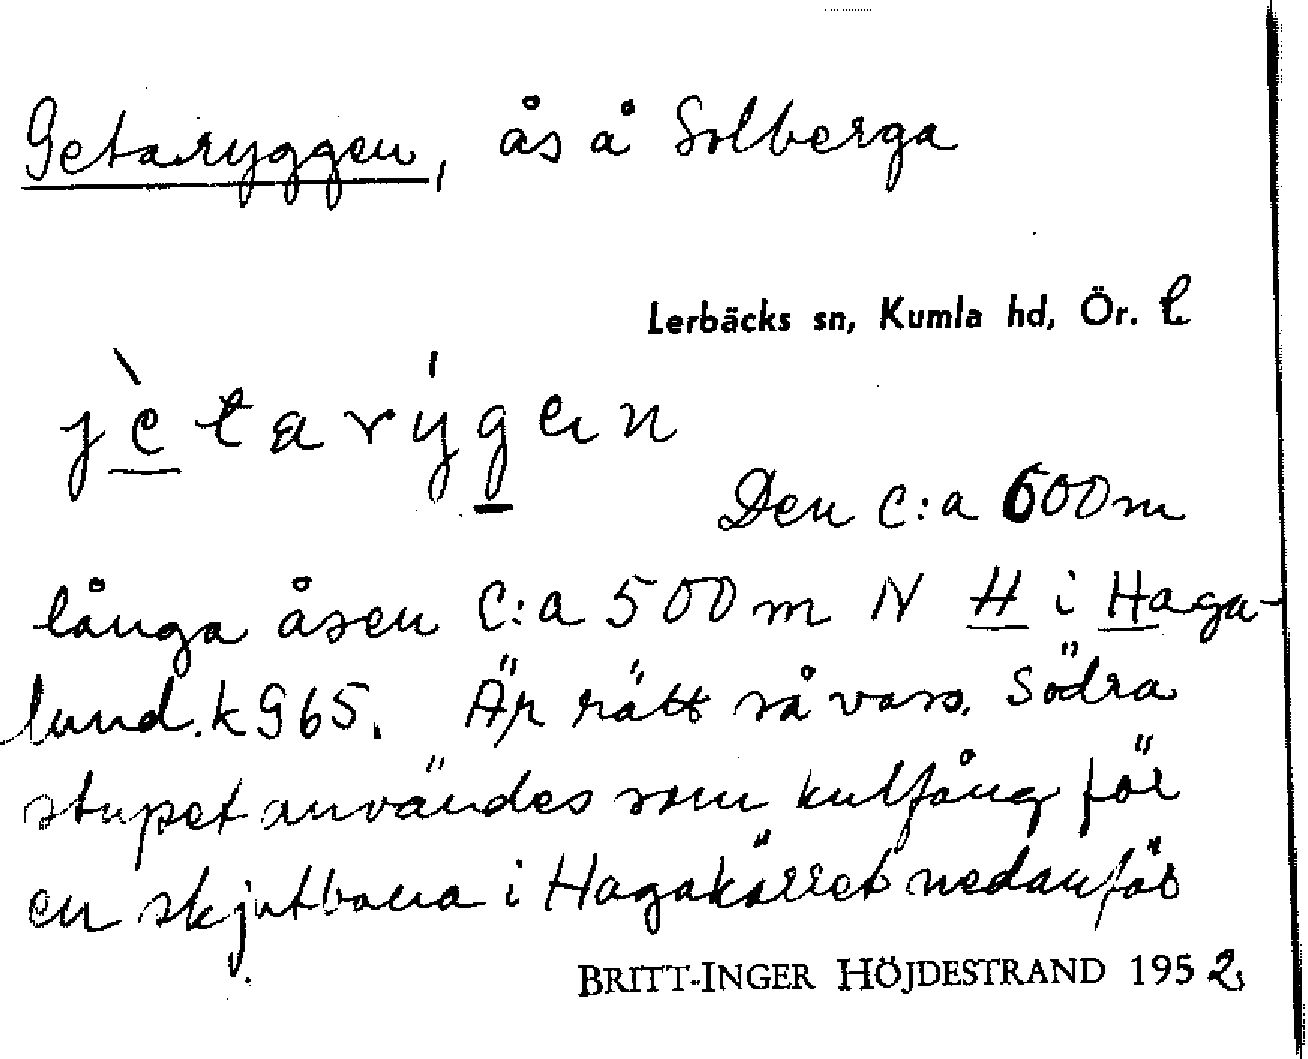 Getaryggen, ås å Solberga
Lerbäcks sn, Kumla hd, Ör. l.
jètarýgen
Den c:a 600 m
långa åsen c:a 500 m N H i Haga-
lund. k 965. Är rätt så vass. Södra
stupet användes som kulfång för
en skjutbana i Hagakärret nedanför
BRITT-INGER HÖJDESTRAND 1952